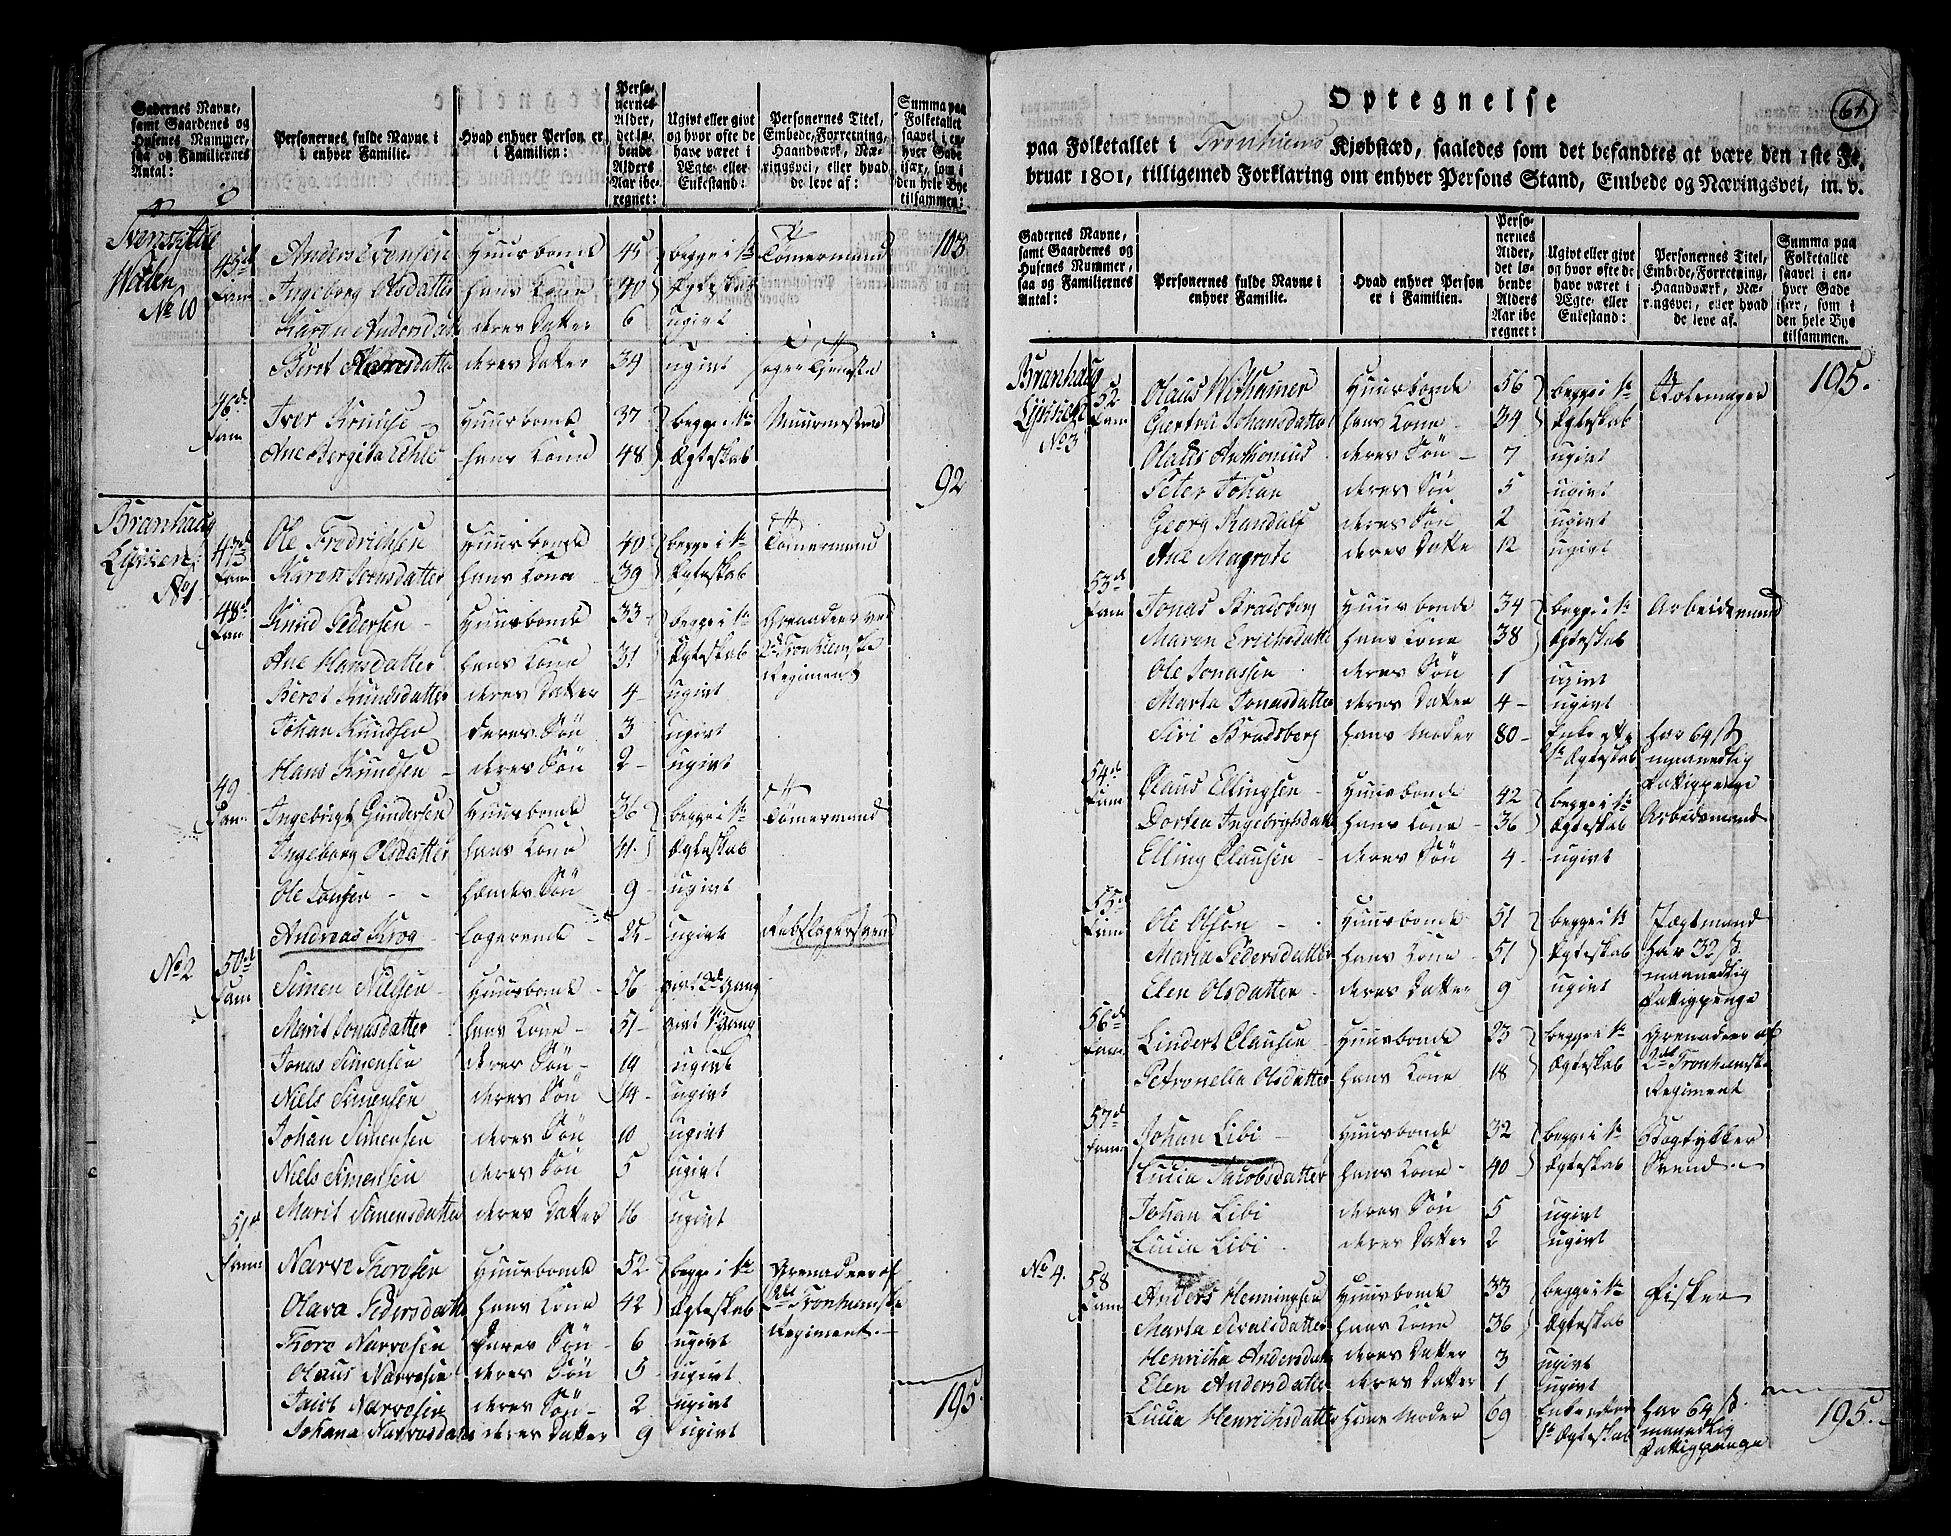 Gadernes Navne,
samt Gaardenes og
Husenes Nummer,
saa og Familiernes
Antal:
Personernes fulde Navne i
i enhver Familie.
Hvad enhver Person er
i Familien:
Perso-
nernes
Alder,
det lø-
bende
Alders
Aar ibe-
regnet:
Ugivt eller givt
og hvor ofte de
have været i
Ægte- eller
Enkestand:
Personernes Titel,
Embede, Forretning,
Haandværk, Næ-
ringsvei, eller hvad
de leve af:
Summa paa
Folketallet
saavel i en-
hver Gade
især, som i
den hele Bye
tilsammen:
45de Fam Anders Evensen Huusbonde 45 begge i 1te Tømermand 103
No 10 Ingeborg Olsdatter hans Kone 40 Ægteskab
Karen Andersdat deres Datter 6 ugivt
Beret Hansdatter deres Datter 34 ugivt
46de Fam Iver Kruuse Huusbonde 37 begge i 1te Muurmester
Ane Bergita Uhle hans Kone 48 Ægteskab
92
Branhaug
47de Fam Ole Fredrichsen Huusbonde 40 begge i 1te Tømermand
No 1 Karen Jonsdatter hans Kone 39 Ægteskab
48de Fam Knud Pedersen Huusbonde 33 begge i 1te Grenadeer ved
Ane Hansdatter hans Kone 31 Ægteskab 2de Tronhiemske
Beret Knudsdatter deres Datter 4 ugivt Regiment
Johan Knudsen deres Søn 3 ugivt
Hans Knudsen deres Søn 2 ugivt
49 Fam Ingebrigt Gundersen Huusbonde 36 begge i 1te Tømermand
Ingeborg Olsdatter hans Kone 41 Ægteskab
Ole Larsen hendes Søn 9 ugivt
Andreas Krog logerende 25 ugivt Rebslagersvend
No 2 50de Fam Simen Nielsen Huusbonde 56 givt 2de Gang
Marit Jonasdatter hans Kone 51 givt 1te Gang
Jonas Simensen deres Søn 19 ugivt
Niels Simensen deres Søn 14 ugivt
Johan Simensen deres Søn 10 ugivt
Niels Simensen deres Søn 5 ugivt
Marit Simensdatter deres Datter 16 ugivt
51de Fam Narve Thoresen Huusbonde 52 begge i 1te Grenadeer af
Olava Pedersdatte hans Kone 42 Ægteskab 2det Tronhiemske
Thore Narvesen deres Søn 6 ugivt Regiment
Olaus Narvesen deres Søn 5 ugivt
Narvesen deres Søn 2 ugivt
Johana Narvesdat deres Datter 9 ugivt
195.
61
Optegnelse
paa Folketallet i Tronhiems Kjøbstæd, saaledes som det befandtes at være den 1ste Fe-
bruar 1801, tilligemed Forklaring om enhver Persons Stand, Embede og Næringsvei, m. v.
Gadernes Navne,
samt Gaardenes og
Husenes Nummer,
saa og Familiernes
Antal:
Personernes fulde Navne i
enhver Familie.
Hvad enhver Person
er i Familien.
Perso-
nernes
Alder,
det lø-
bende
Alders
Aar ibe-
regnet:
Ugivt eller givt
og hvor ofte de
have været i
Ægte- eller
Enkestand:
Personernes Titel,
Embede, Forretning,
Haandværk, Næ-
ringsvei, eller hvad
de leve af.
Summa paa
Folketallet
saavel i en-
hver Gade
især, som i
den hele Bye
tilsammen.
Branhaug 52 Fam Olaus Huusbonde 56 begge i 1te Stolemager 195.
Giertru Johansdatter hans Kone 34 Ægteskab
No 3 Olaus Anthonius deres Søn 7 ugivt
Peter Johan deres Søn 5 ugivt
Georg Randulf deres Søn 2 ugivt
Ane Magrete deres Datte 12 ugivt
53de Fam Jonas Bradsberg Huusbonde 34 begge i 1te Arbeidsmand
Maren Erichsdatte hans Kone 38 Ægteskab
Ole Jonassen deres Søn 1 ugivt
Marta Jonasdatter deres Datter 4 ugivt
Siri Bradsberg hans Moder 80 Enke efte har 64 ß
1te Ægteskab maanedlig
Fattigpenge
54de Fam Claus Ellingsen Huusbonde 42 begge i 1te Arbeidsmand
Dortea Ingebrigtsdatt hans Kone 36 Ægteskab
Elling Clausen deres Søn 4 ugivt
55de Fam Ole Olsøn Huusbonde 51 begge i 1te Jægtmand
Maria Pedersdatter hans Kone 51 Ægteskab har 32 ß
Elen Olsdatter deres Datter 9 ugivt maanedlig
Fattigpenge
56de Fam Lindert Clausen Huusbonde 23 begge i 1te Grenadeer af
Petronella Olsdatter hans Kone 18 Ægteskab 2det Tronhiemske
Regiment
57de Fam Johan Libi Huusbonde 32 begge i 1te Bogtykker
Lucia Jacobsdatter hans Kone 40 Ægteskab Svend
Johan Libi deres Søn 5 ugivt
Lucia Libi deres Datter 2 ugivt
No 4. 58 Fam Anders Henningsen Huusbonde 33 begge i 1te Fisker
Marta Sivalsdatter hans Kone 36 Ægteskab
Henricha Andersdatt deres Datter 3 ugivt
Elen Andersdatte deres Datter 1 ugivt
Lucia Henrichsdatter hans Moder 69 har 64 ß
1te Ægteskab maanedlig
Fattigpenge
195.